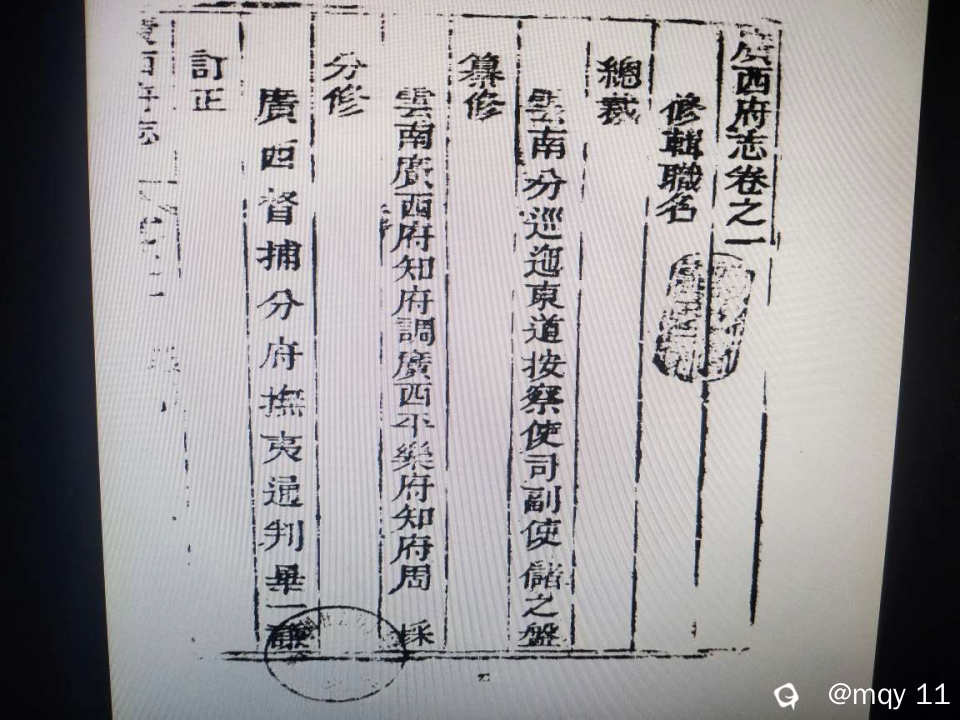 廣西府志卷之一
修輯職名
總裁
雲南分巡迤東道按察使司副使儲之盤
纂修
雲南廣西府知府調廣西平樂府知府周 採
分修
廣西督捕分府撫夷通判畢一謙
訂正
廣西府志
@mqy 11